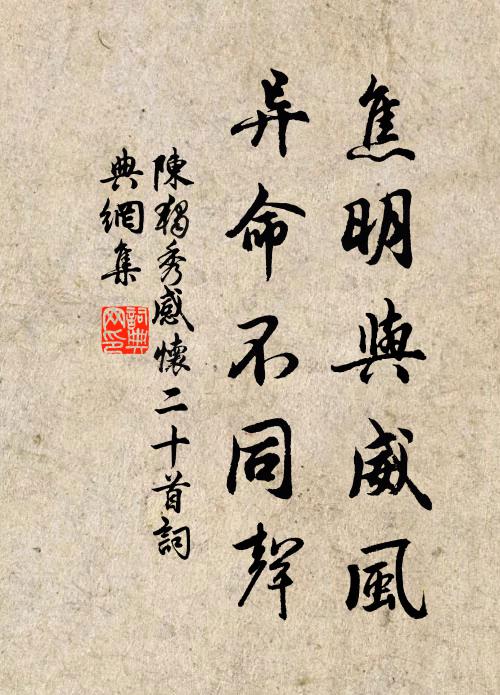 焦明與威風
异命不同聲
陳獨秀感懷二十首詞
典網集
詞典網印